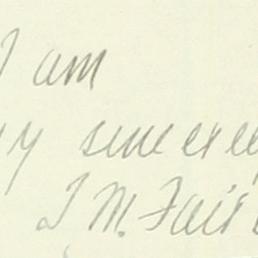 I am
ry sincerely
J M. Fair